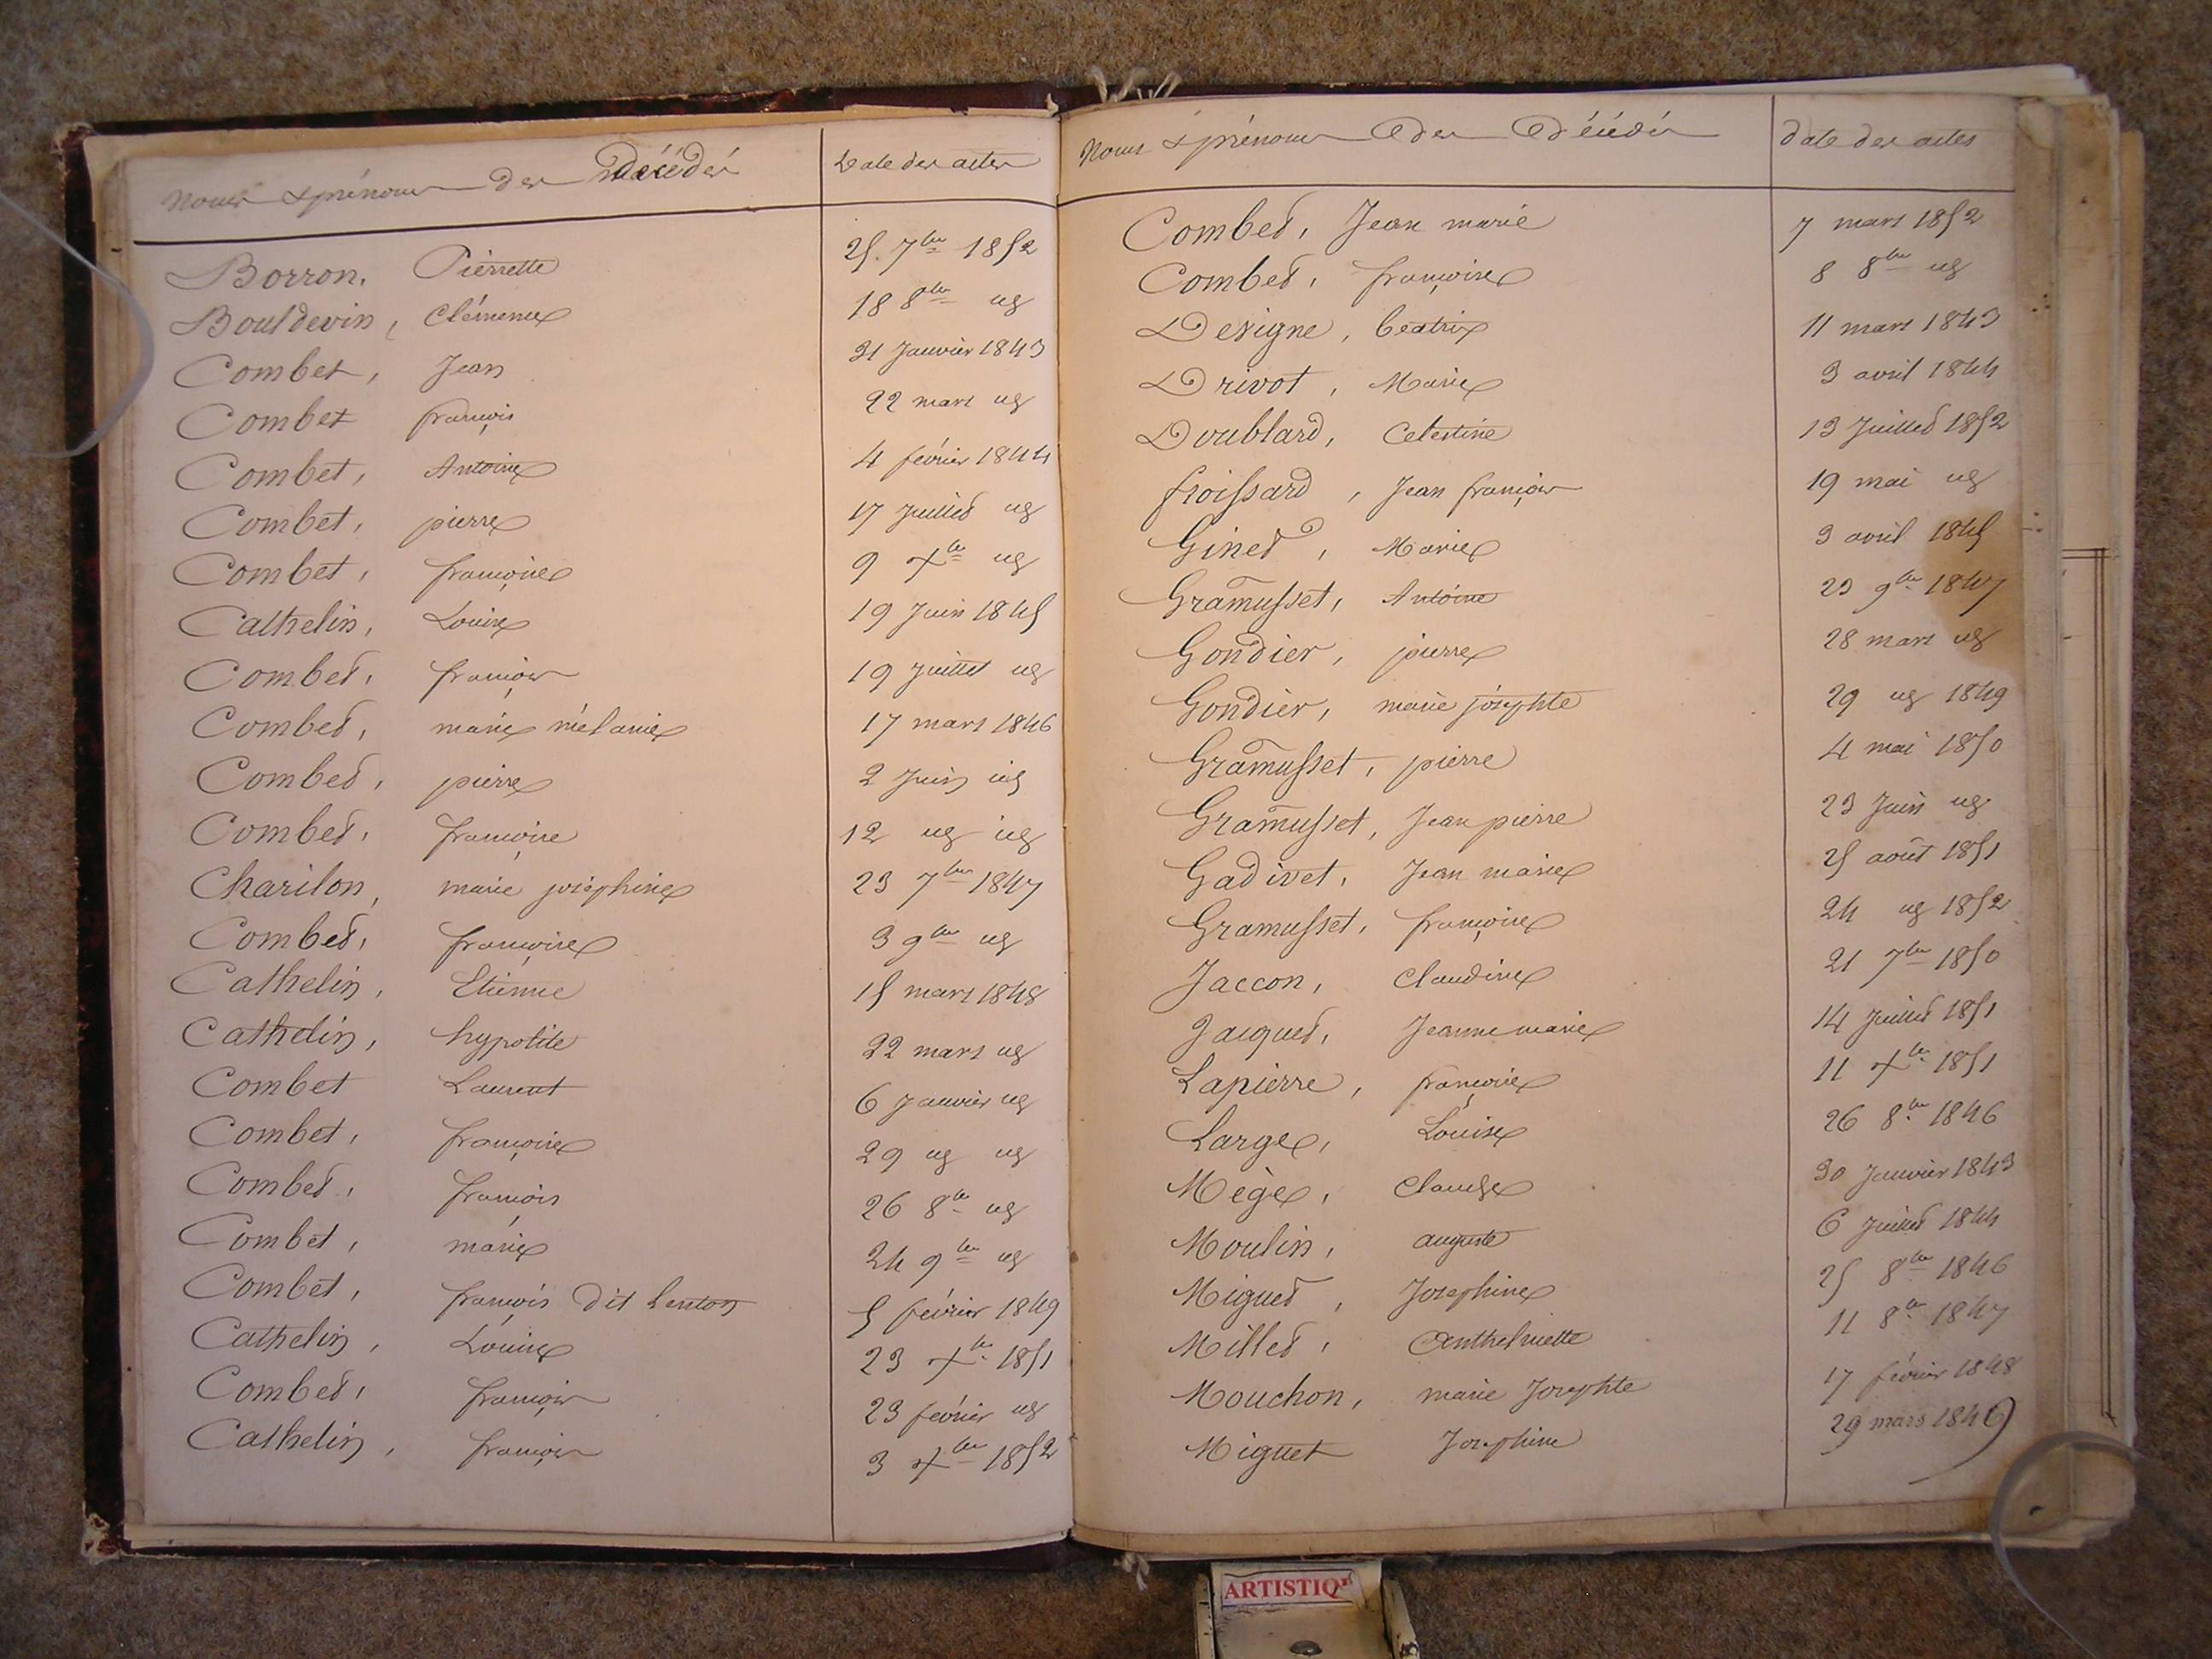 Noms & prénoms des Décédés Date des actes
Borron, Pierrette 25 7bre 1852
Bouldevin, Clémence 18 8bre ug
Combet, Jean 31 Janvier 1843
Combet françois 22 mars ug
Combet, Antoine 4 février 1844
Combet, pierre 17 Juillet ug
Combet, françoise 9 Xbre ug
Cathelin, Louise 19 Juin 1845
Combet, françois 19 Juillet ug
Combet, marie mélanie 17 mars 1846
Combet, pierre 2 Juin ug
Combet, françoise 12 ug ug
Charilon, marie joséphine 23 7bre 1847
Combet, françoise 3 9bre ug
Cathelin, Etienne 15 mars 1848
Cathelin, hypolite 22 mars ug
Combet Laurent 6 Janvier ug
Combet, françoise 29 ug ug
Combet, françois 26 8bre ug
Combet, marie 24 9bre ug
Combet, françois dit Lenton 5 février 1849
Cathelin, Louise 23 Xbre 1851
Combet, françois 23 février ug
Cathelin, françois 3 Xbre 1852
Noms & prénoms des Décédés date des actes
Combet, Jean marie 7 mars 1852
Combet, françoise 8 8bre ug
Désigne, beatrix 11 mars 1843
Drivot, Marie 3 avril 1844
Doublard, Celestine 13 Juillet 1852
froissard, Jean françois 19 mai ug
Ginet, Marie 3 avril 1845
Gramusset, Antoine 23 9bre 1847
Gondier, pierre 28 mars ug
Gondier, marie josephte 29 ug 1849
Gramusset, pierre 4 mai 1850
Gramusset, Jean pierre 23 Juin ug
Gadivet, Jean marie 25 août 1851
Gramusset, françoise 24 ug 1852
Jaccon, Claudine 21 7bre 1850
Jacquet, Jeanne marie 14 Juillet 1851
Lapierre, françoise 11 Xbre 1851
Large, Louise 26 8bre 1846
Mège, Claude 30 Janvier 1843
Moulin, auguste 6 Juillet 1844
Miguet, Josephine 25 8bre 1846
Millet, Anthelmette 11 8bre 1847
Mouchon, marie Josephte 17 février 1848
Miguet Josephine 29 mars 1846
ARTISTIQ